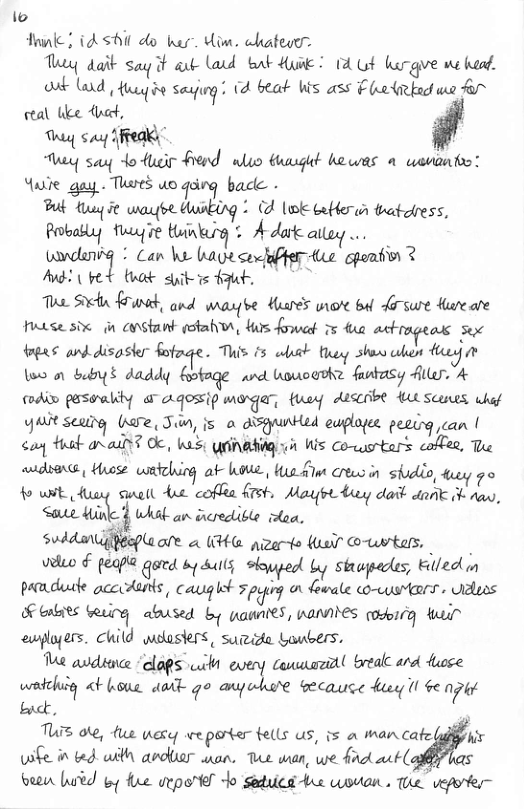 16
think: i'd still do her. Him. whatever.
They don't say it out loud but think: i'd let her give me head.
out loud, they're saying: i'd beat his ass if he tricked me for
real like that.
They say: Freak.
They say to their friend who thought he was a woman too:
You're gay. There's no going back.
But they're maybe thinking: i'd look better in that dress.
Probably they're thinking: A dark alley...
Wondering: Can he have sex after the operation?
And: I bet that shit is tight.
The sixth format, and maybe there's more but for sure there are
these six in constant rotation, this format is the outrageous sex
tapes and disaster footage. This is what they show when they're
low on baby's daddy footage and homoerotic fantasy filler. A
radio personality or a gossip monger, they describe the scenes. what
you're seeing here, Jim, is a disgruntled employee peeing, can I
say that on air? Ok, he's urinating in his co-worker's coffee. The
audience, those watching at home, the film crew in studio, they go
to work, they smell the coffee first. Maybe they don't drink it now.
Some think: what an incredible idea.
Suddenly people are a little nicer to their co-workers.
video of people gored by bulls, stomped by stampedes, killed in
parachute accidents, caught spying on female co-workers. videos
of babies being abused by nannies, nannies robbing their
employers. child molesters, suicide bombers.
The audience claps with every commercial break and those
watching at home don't go anywhere because they'll be right
back.
This one, the nosy reporter tells us, is a man catching his
wife in bed with another man. The man, we find out later, has
been hired by the reporter to seduce the woman. The reporter